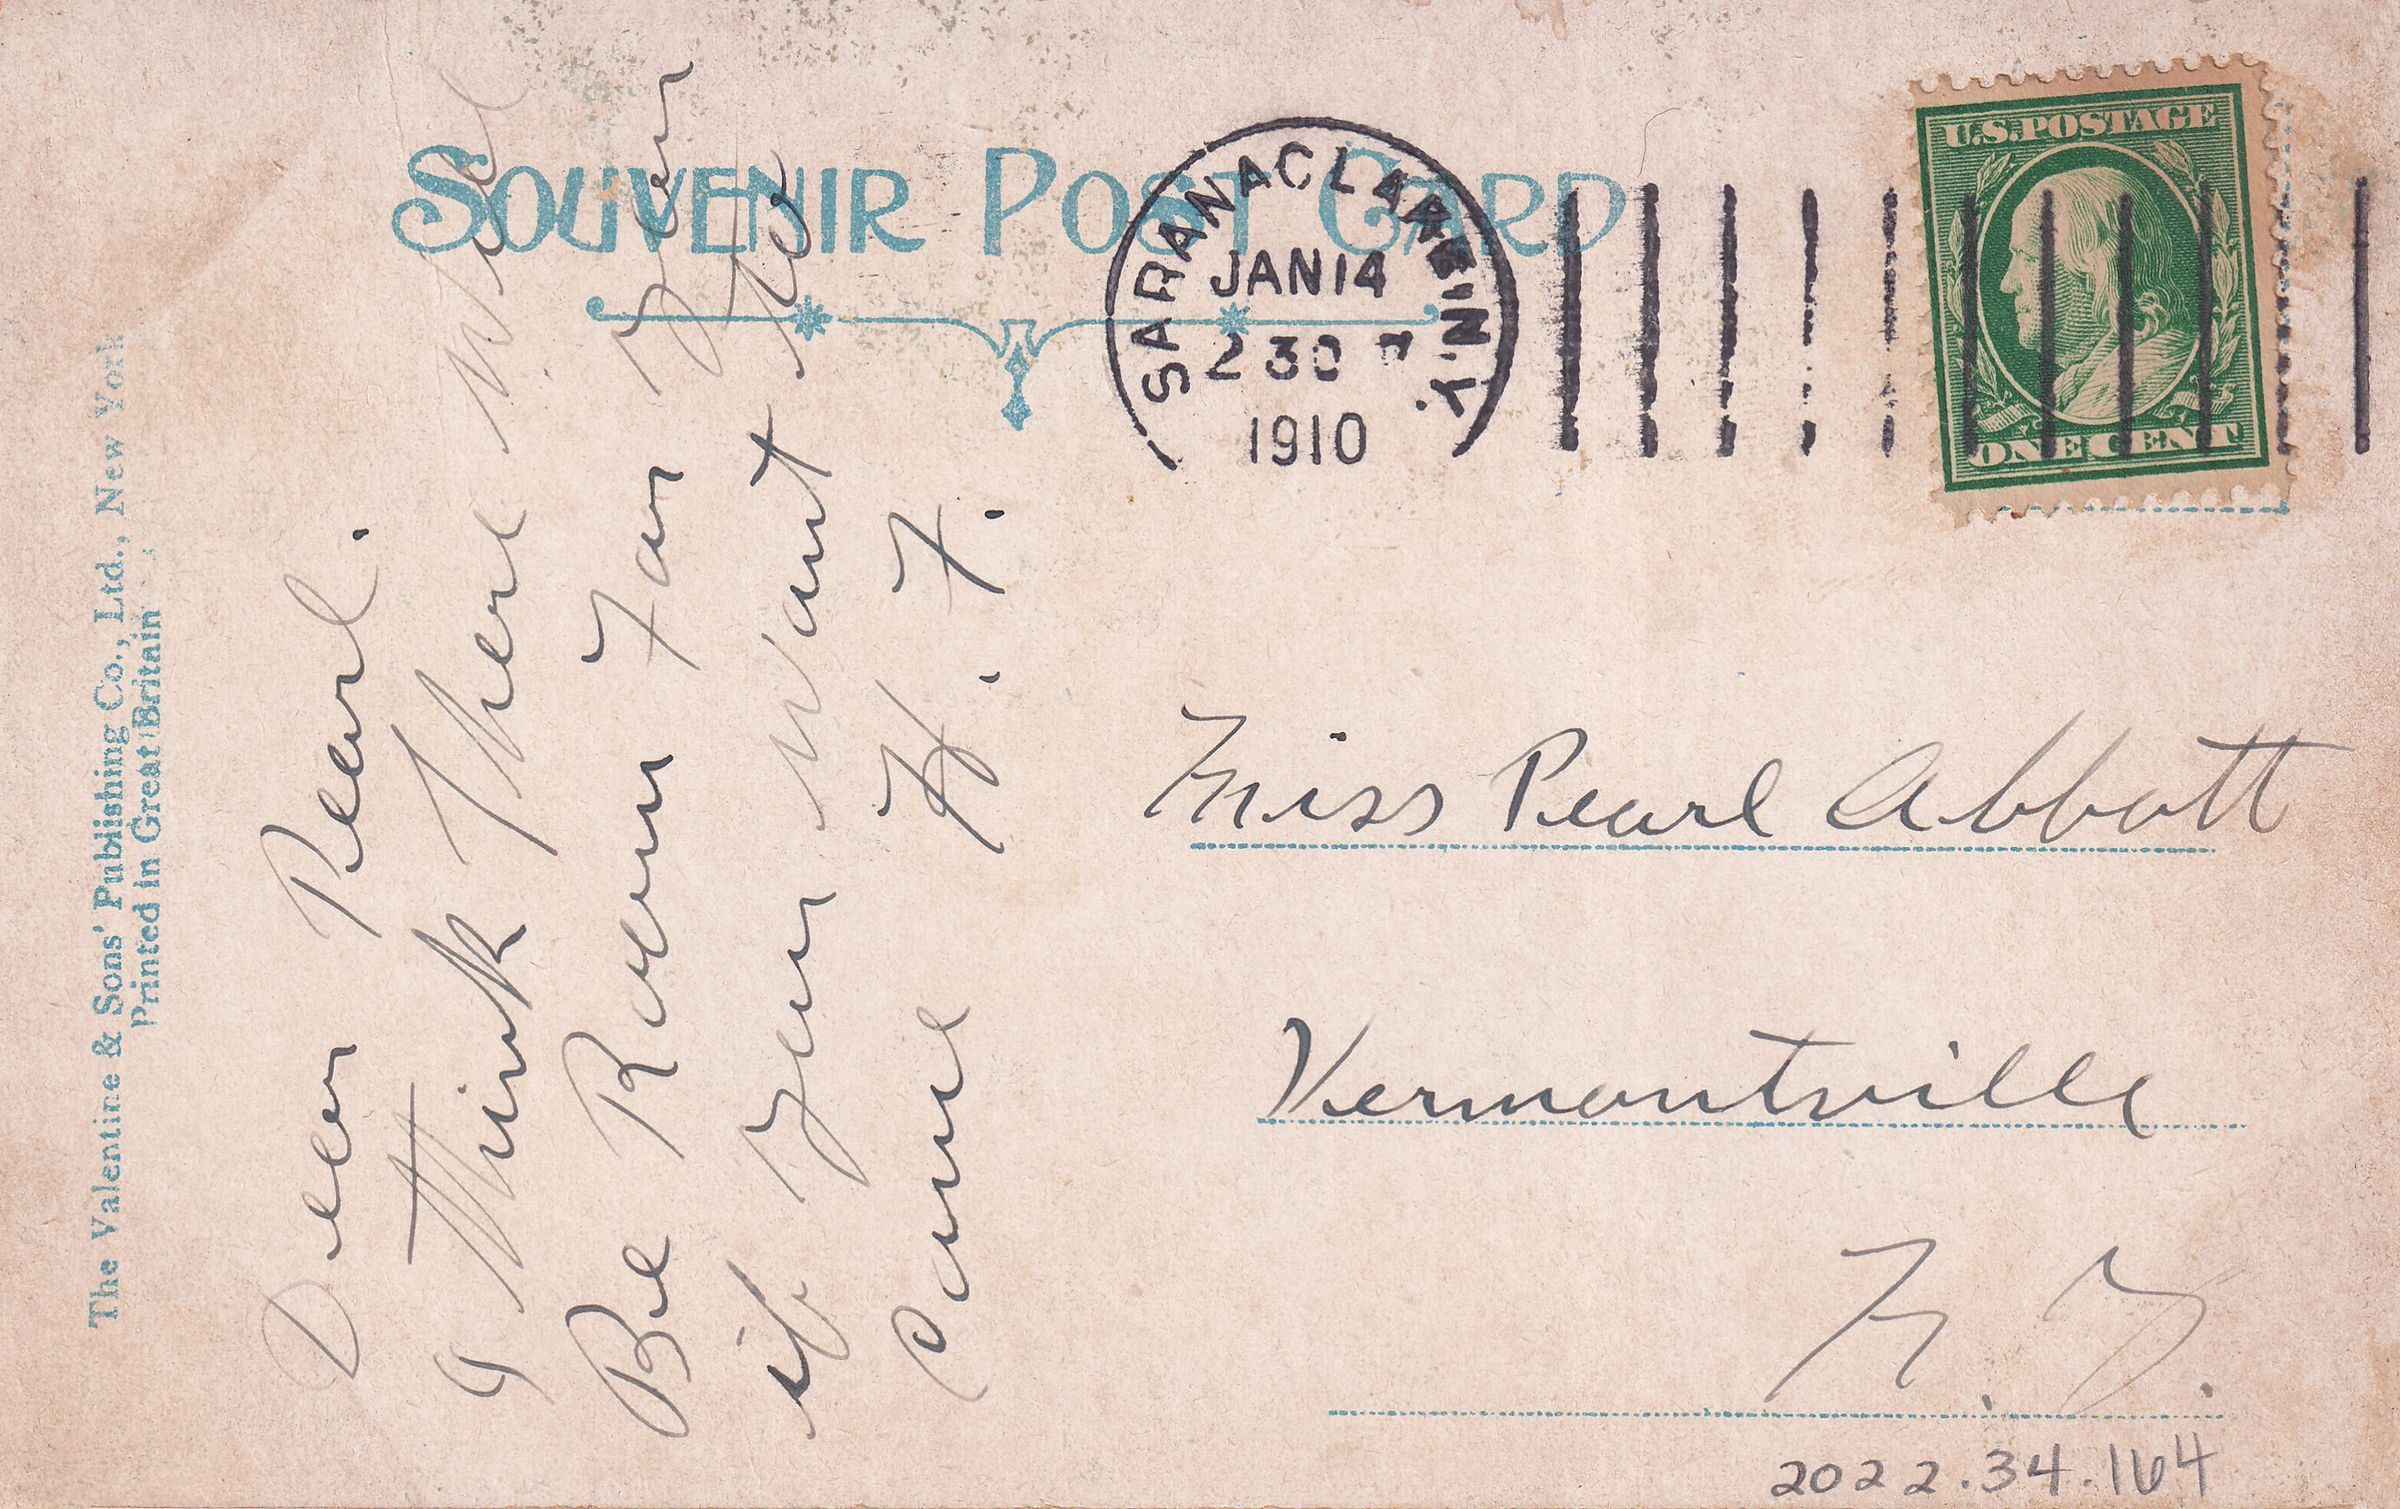 SOUVENIR POST CARD
The Valentine & Sons' Publishing Co., Ltd., New York
Printed in Great Britain
SARANAC LAKE N.Y.
JAN 14
2 30 P
1910
U.S. POSTAGE
ONE CENT
Dear Pearl.
I Think There Will
Be Room For You
if You Want to
Come H. F.
Miss Pearl Abbott
Vermontville
N. Y.
2022.34.164